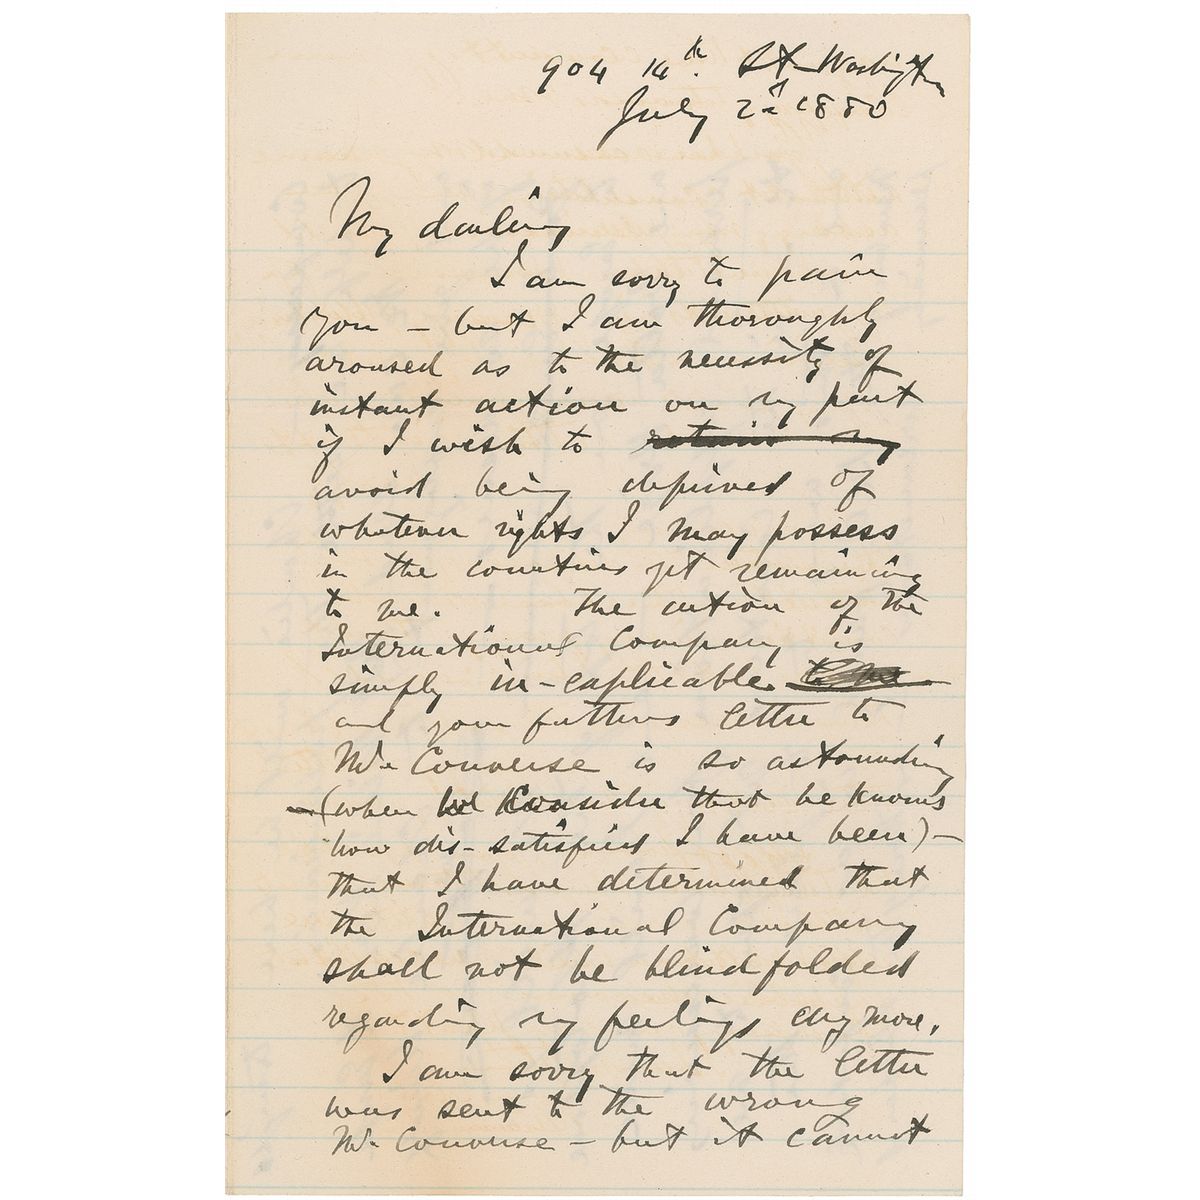 904 14th. St. Washington
July 2nd 1880
My darling
I am sorry to pain
you — but I am thoroughly
aroused as to the necessity of
instant action on my part
if I wish to retain my
avoid being deprived of
whatever rights I may possess
in the countries yet remaining
to me. The action of the
International Company is
simply in-explicable to me
and your father's letter to
Mr. Converse is so astounding
—(when we consider that he knows
how dis-satisfied I have been)—
that I have determined that
the International Company
shall not be blindfolded
regarding my feelings any more.
I am sorry that the letter
was sent to the wrong
Mr. Converse — but it cannot